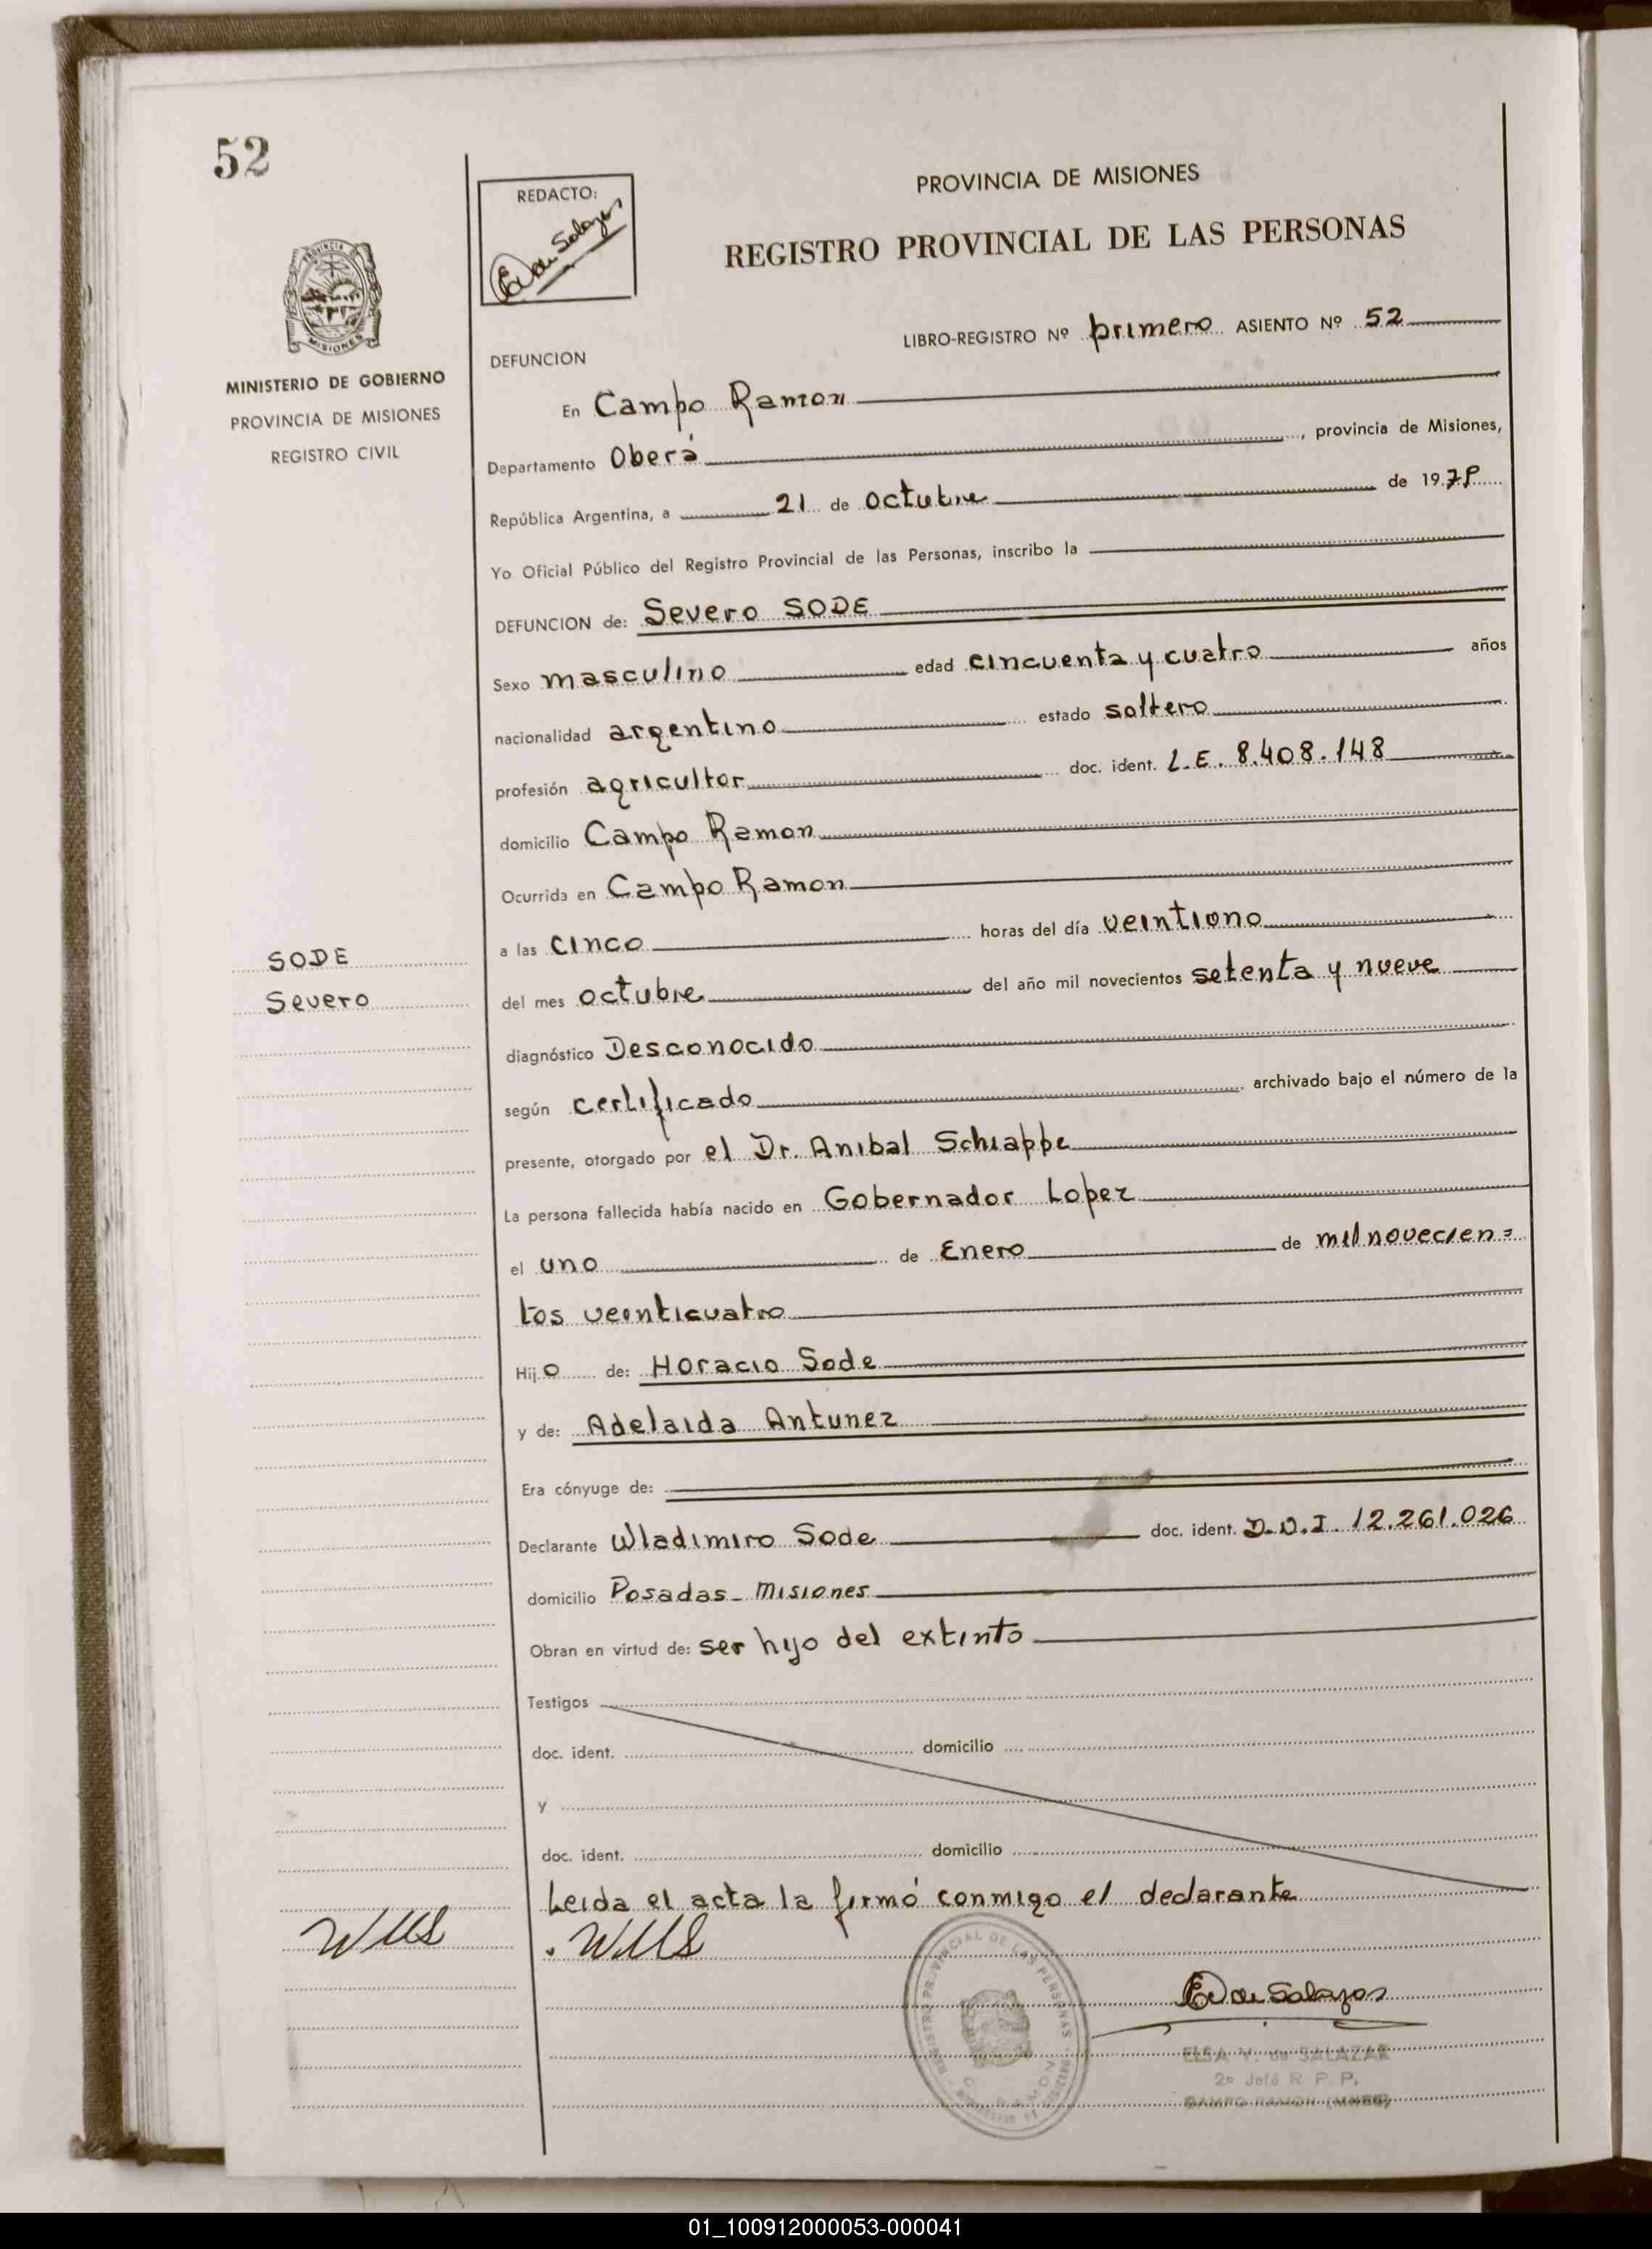 52
REDACTO:
E de Salazar
PROVINCIA DE MISIONES
REGISTRO PROVINCIAL DE LAS PERSONAS
PROVINCIA
MISIONES
MINISTERIO DE GOBIERNO
PROVINCIA DE MISIONES
REGISTRO CIVIL
LIBRO-REGISTRO Nº primero ASIENTO Nº 52
DEFUNCION
En Campo Ramon
Departamento Oberá, provincia de Misiones,
República Argentina, a 21 de octubre de 1979
Yo Oficial Público del Registro Provincial de las Personas, inscribo la
DEFUNCION de: Severo SODE
Sexo masculino edad cincuenta y cuatro años
nacionalidad argentino estado soltero
profesión agricultor doc. ident. L.E. 8.408.148
domicilio Campo Ramon
Ocurrida en Campo Ramon
a las cinco horas del día veintiuno
SODE
Severo
del mes octubre del año mil novecientos setenta y nueve
diagnóstico Desconocido
según certificado archivado bajo el número de la
presente, otorgado por el Dr. Anibal Schiappe
La persona fallecida había nacido en Gobernador Lopez
el uno de Enero de mil novecien=
tos veinticuatro
Hijo de: Horacio Sode
y de: Adelaida Antunez
Era cónyuge de:
Declarante Wladimiro Sode doc. ident. D.N.I. 12.261.026
domicilio Posadas - Misiones
Obran en virtud de: ser hijo del extinto
Testigos
doc. ident. domicilio
y
doc. ident. domicilio
Leida el acta la firmó conmigo el declarante
E de Salazar
REGISTRO PROVINCIAL DE LAS PERSONAS
ELSA V. de SALAZAR
2º Jefe R. P. P.
CAMPO RAMON (MNES)
01_100912000053-000041